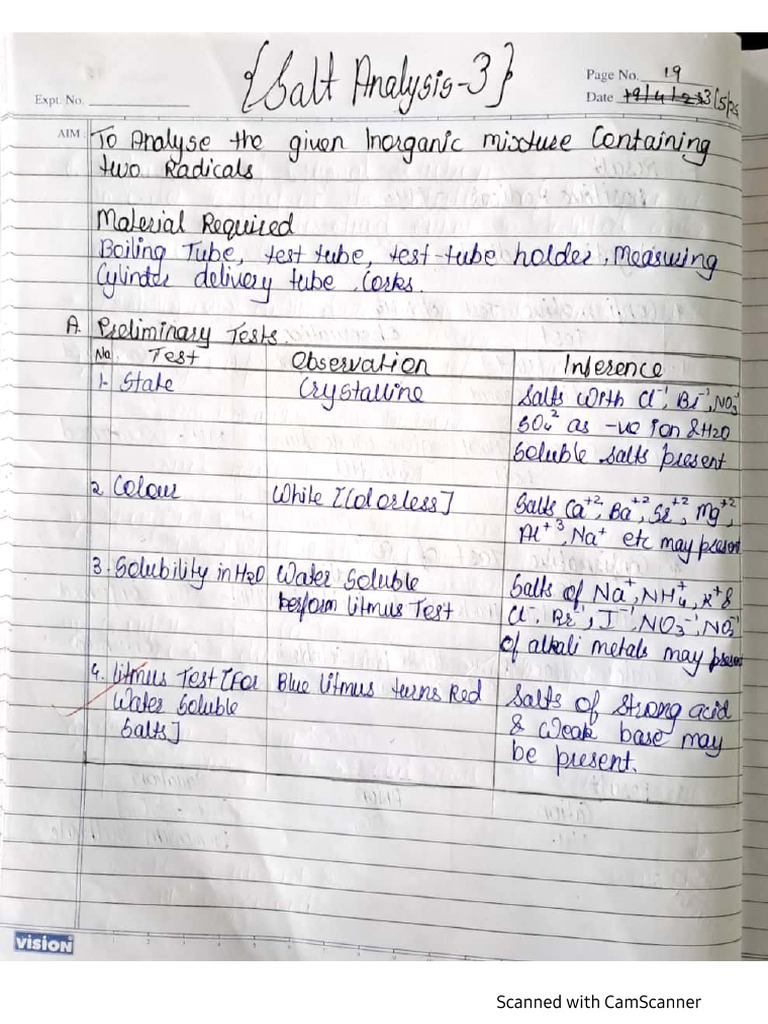 {Salt Analysis-3}
Page No. 19
Expt. No.
Date 19/4/23 3/5/23
AIM : To Analyse the given Inorganic mixture Containing
two Radicals
Material Required
Boiling Tube, test tube, test-tube holder, Measuring
Cylinder delivery tube, Corks.
A. Preliminary Tests.
No. Test Observation Inference
1. State Crystalline Salts with Cl⁻¹, Br⁻¹, NO₃⁻¹
SO₄² as -ve ion & H2O
Soluble salts present
2. Colour White [Colorless] Salts Ca⁺², Ba⁺², Sr⁺², Mg⁺²,
Al⁺³, Na⁺ etc may present
3. Solubility in H2O Water Soluble Salts of Na⁺, NH₄⁺, K⁺ &
Perform Litmus Test Cl⁻, Br⁻, I⁻¹, NO₃⁻¹, NO₂⁻
of alkali metals may present
4. Litmus Test [For Blue Litmus turns Red Salts of Strong acid
Water Soluble & Weak base may
Salts] be present.
vision
Scanned with CamScanner